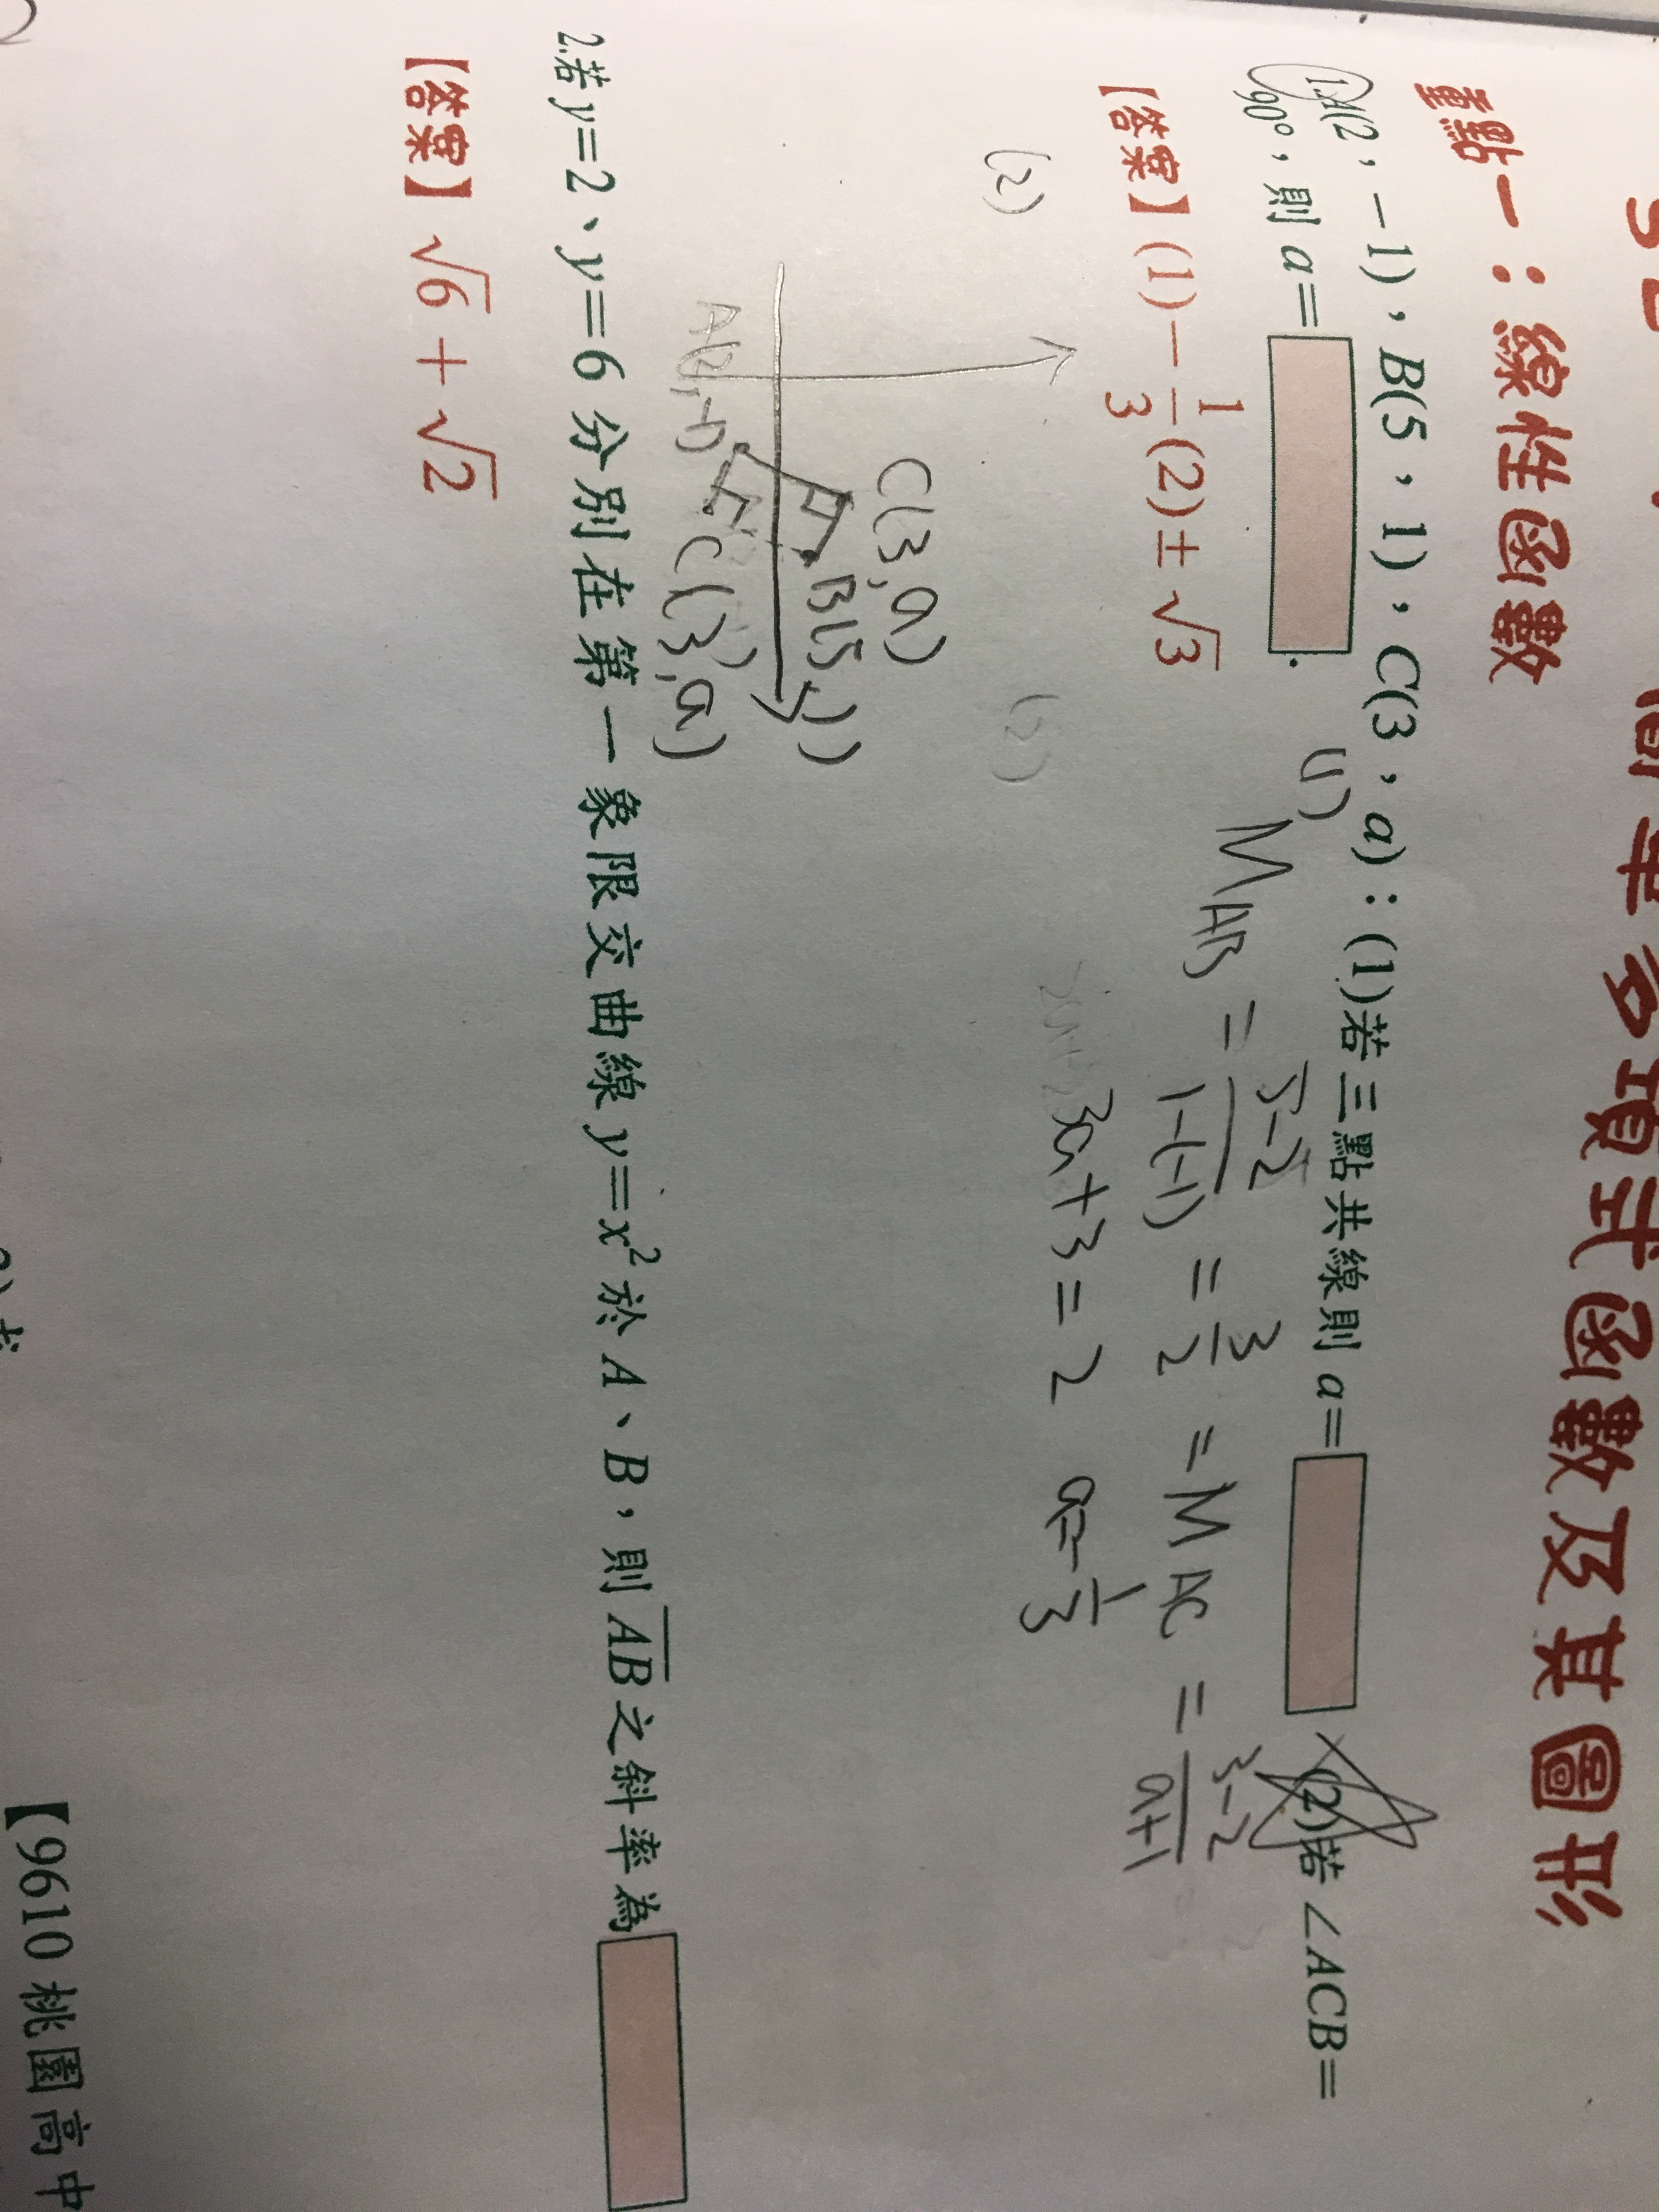 簡單多項式函數及其圖形
重點一：線性函數
1.A(2，−1)，B(5，1)，C(3，a)：(1)若三點共線則 a=　(2)若 ∠ACB=
90°，則 a=　.
【答案】(1)−1/3 (2)±√3
(1) M AB = 5−2 / 1−(−1) = 3/2 = M AC = 3−2 / a+1
3a+3=2 a=−1/3
(2)
(2)
C(3,a)
B(5,1)
A(2,−1)
C(3,a)
2.若 y=2、y=6 分別在第一象限交曲線 y=x² 於 A、B，則 AB 之斜率為
【答案】√6+√2
【9610 桃園高中